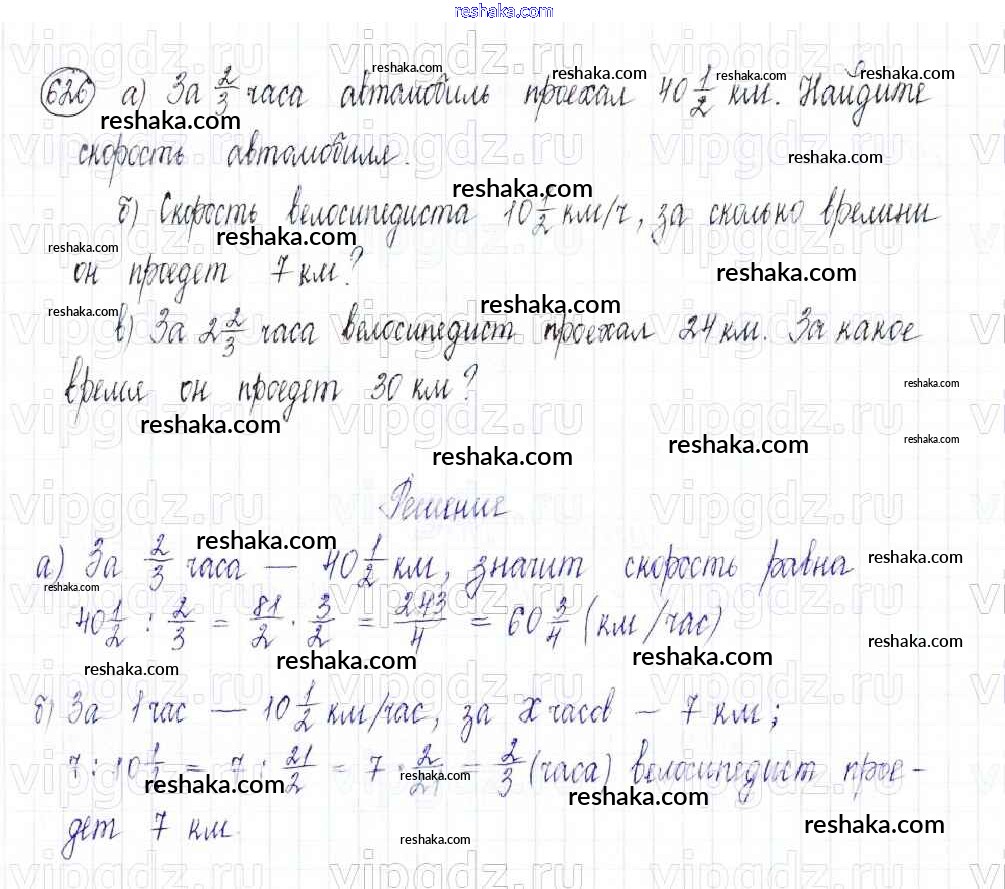 reshaka.com
626 а) За 2/3 часа автомобиль проехал 40 1/2 км. Найдите
скорость автомобиля.
б) Скорость велосипедиста 10 1/2 км/ч, за сколько времени
он проедет 7 км?
в) За 2 2/3 часа велосипедист проехал 24 км. За какое
время он проедет 30 км?
Решение
а) За 2/3 часа — 40 1/2 км, значит скорость равна
40 1/2 : 2/3 = 81/2 · 3/2 = 243/4 = 60 3/4 (км/час)
б) За 1 час — 10 1/2 км/час, за x часов — 7 км;
7 : 10 1/2 = 7 : 21/2 = 7 · 2/21 = 2/3 (часа) велосипедист прое-
дет 7 км.